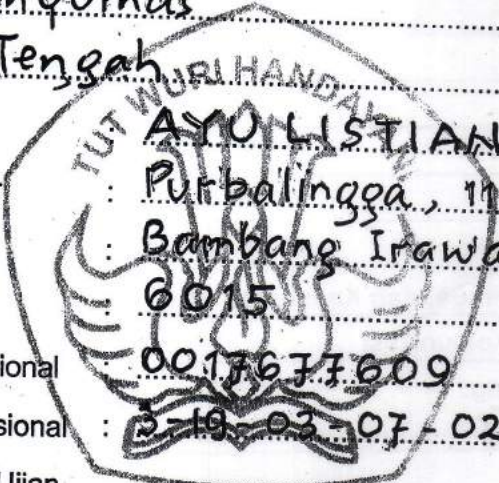 Tengah
TUT WURI HANDAYANI
AYU LISTIAN
: Purbalingga, 11
: Bambang Irawa
: 6015
ional : 0017677609
sional : 3-19-03-07-02
Ujian